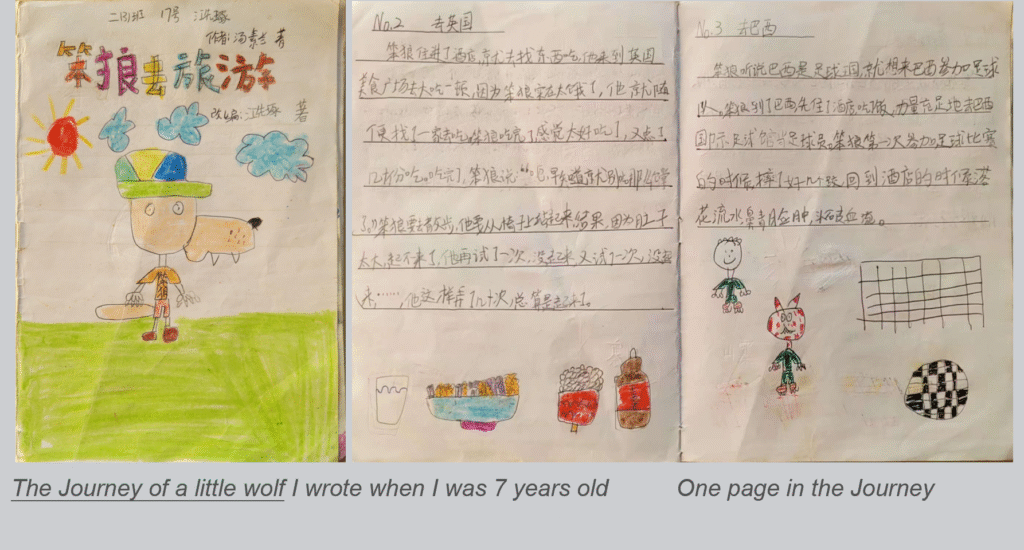 二(3)班 17号
作者:汤素兰 著
笨狼去旅游
改编: 著
笨狼
No.2 去英国
笨狼住进了酒店,就去找东西吃,他来到英国
美食广场去大吃一顿,因为笨狼实在太饿了,他就随
便找了一家去吃,笨狼吃完了感觉太好吃了,又点了
12份吃。吃完了,笨狼说:“
了。”笨狼要去散步,他要从椅子上站起来,结果,因为肚子
太大,起不来了,他再试了一次,没起来,又试了一次,没起
来……,他这样弄了几十次,总算是起来了。
No.3 去巴西
笨狼听说巴西是足球王国,就想来巴西参加足球
队。笨狼到了巴西先住了酒店吃饭,力量充足地去巴西
国际足球馆当足球员。笨狼第一次参加足球比赛
的时候,摔了好几个跤,回到酒店的时候落
花流水鼻青脸肿,头破血流。
The Journey of a little wolf I wrote when I was 7 years old
One page in the Journey